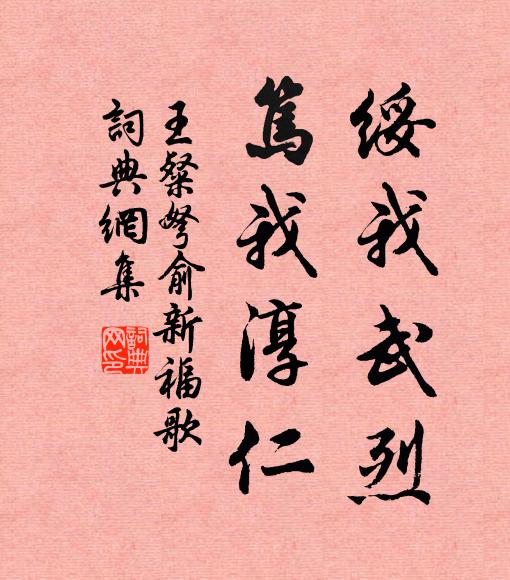 綏我武烈
篤我淳仁
王粲弩俞新福歌
詞典網集
詞典網印